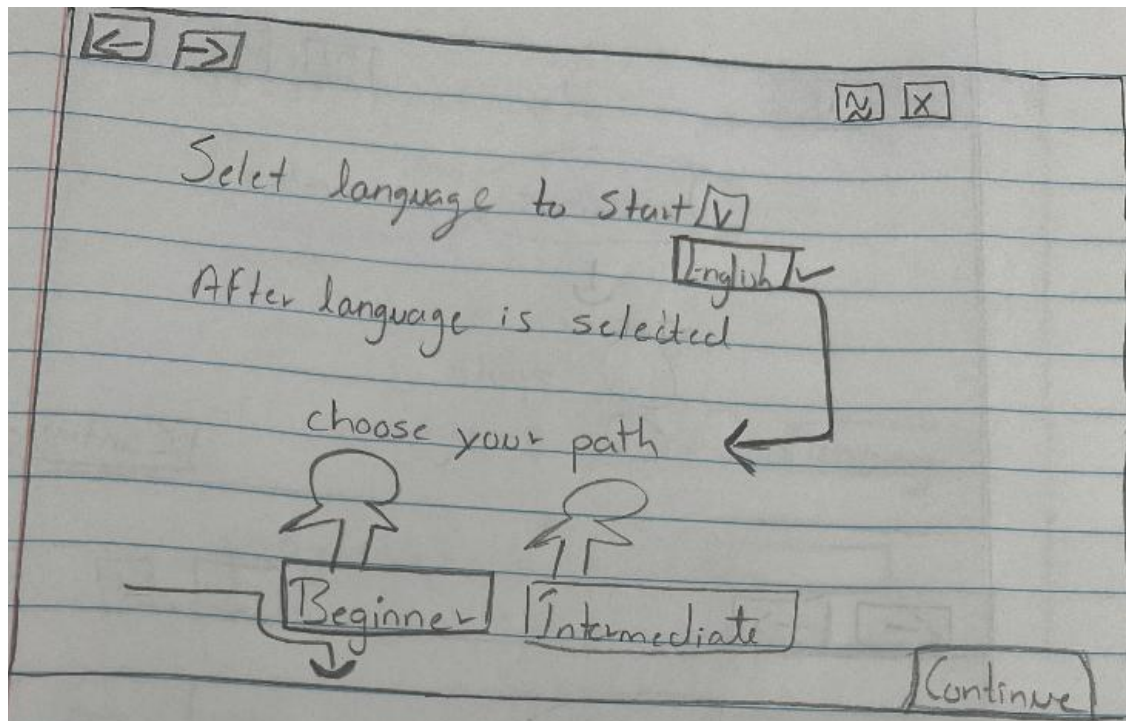 X
Selet language to start V
English
After language is selected
choose your path
Beginner Intermediate
Continue